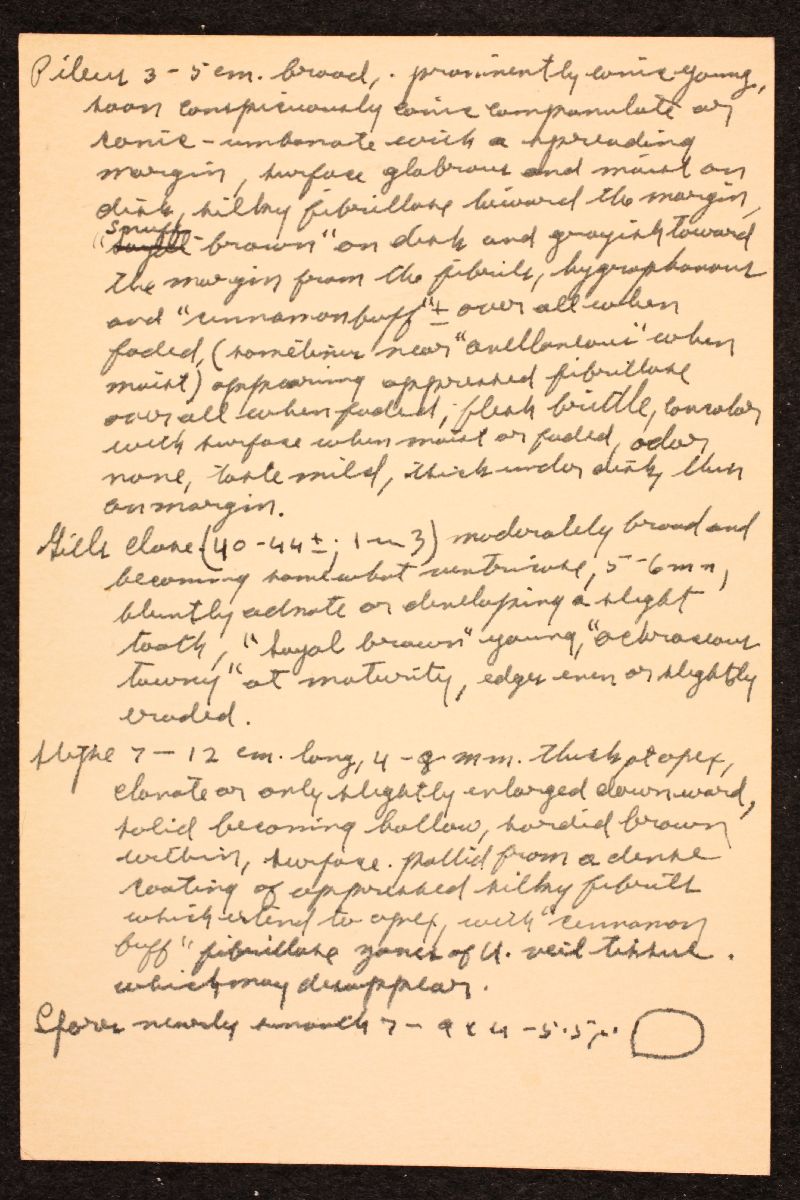 Pileus 3-5 cm. broad, . prominently conic young,
soon conspicuously conic campanulate or
conic-umbonate with a spreading
margin, surface glabrous and moist on
disk, silky fibrillose toward the margin,
"snuff brown" on disk and grayish toward
the margin from the fibrils, hygrophanous
and "cinnamon buff" ± over all when
faded, (sometimes near "avellaneous" when
moist) appearing appressed fibrillose
over all when faded; flesh brittle, concolor
with surface when moist or faded, odor
none, taste mild, thick under disk, thin
on margin.
Gills close (40-44±; 1-3) moderately broad and
becoming somewhat ventricose, 5-6 mm,
bluntly adnate or developing a slight
tooth, "sayal brown" young, "ochraceous
tawny" at maturity, edges even or slightly
eroded.
Stipe 7-12 cm. long, 4-8 mm. thick at apex,
clavate or only slightly enlarged downward,
solid becoming hollow, sordid brown
within, surface. pallid from a dense
coating of appressed silky fibrils
which extend to apex, with "cinnamon
buff" fibrillose zones of U. veil tissue.
which may disappear.
Spores nearly smooth 7-9 x 4-5.5μ.